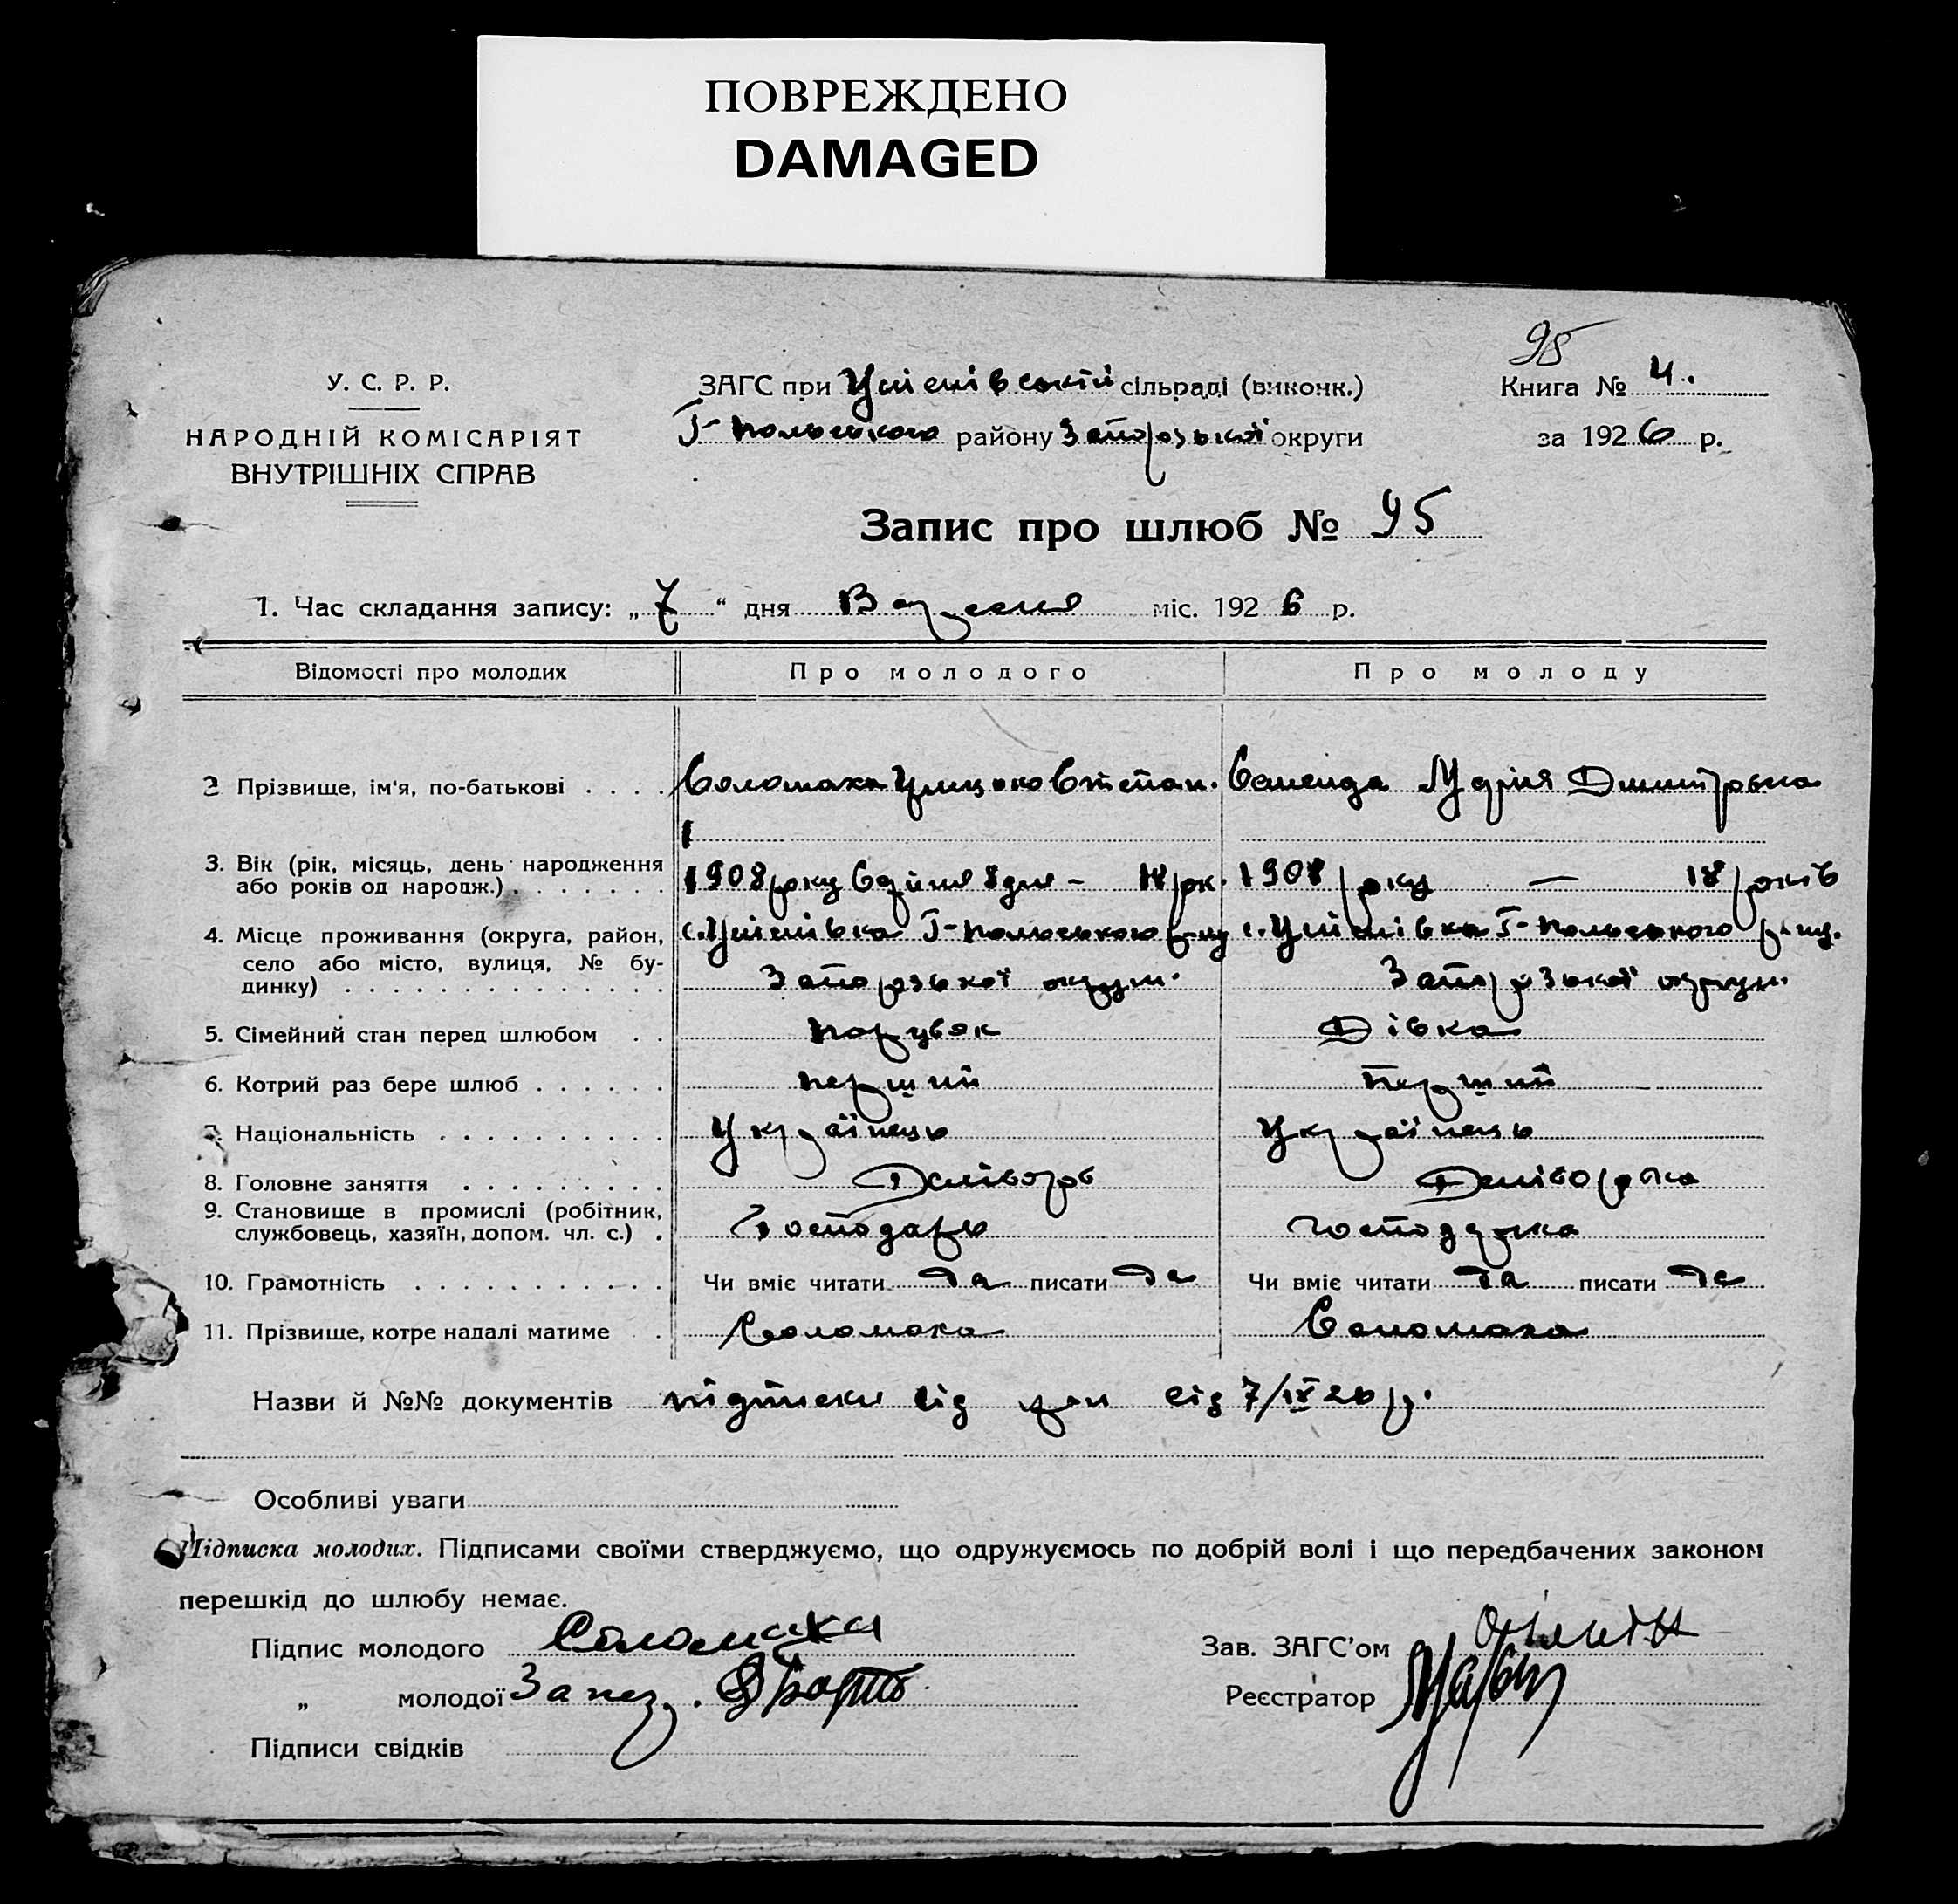 ПОВРЕЖДЕНО
DAMAGED
95
У. С. Р. Р.
НАРОДНІЙ КОМІСАРІЯТ
ВНУТРІШНІХ СПРАВ
ЗАГС при Успенівській сільраді (виконк.)
Г-Польського району Запорізької округи
Книга № 4.
за 1926 р.
Запис про шлюб № 95
1. Час складання запису: „7“ дня Вересня міс. 1926 р.
Відомості про молодих Про молодого Про молоду
2 Прізвище, ім'я, по-батькові . . . . Соломаха Степан. Марія Дмитровна
3. Вік (рік, місяць, день народження
або років од народж.) . . . . . . . 1908 року 8 дня – 18 рок. 1908 року — 18 років
4. Місце проживання (округа, район, с. Успенівка Г-Польського р-ну с. Успенівка Г-Польського р-ну.
село або місто, вулиця, № бу-
динку) . . . . . . . . . . . . . . Запорізької округи. Запорізької округи.
5. Сімейний стан перед шлюбом . . Парубок Дівка
6. Котрий раз бере шлюб . . . . . . Перший Перший
7. Національність . . . . . . . . . . Українець Українець
8. Головне заняття . . . . . . . . . Хлібороб Хліборобка
9. Становище в промислі (робітник,
службовець, хазяїн, допом. чл. с.) . Господарь господарка
10. Грамотність . . . . . . . . . . . Чи вміє читати да писати да Чи вміє читати да писати да
11. Прізвище, котре надалі матиме . . Соломаха Соломаха
Назви й №№ документів підписки від від 7/IX 26 р.
Особливі уваги
Підписка молодих. Підписами своїми стверджуємо, що одружуємось по добрій волі і що передбачених законом
перешкід до шлюбу немає.
Підпис молодого Соломаха
„ молодої За негр.
Підписи свідків
Зав. ЗАГС'ом
Реєстратор